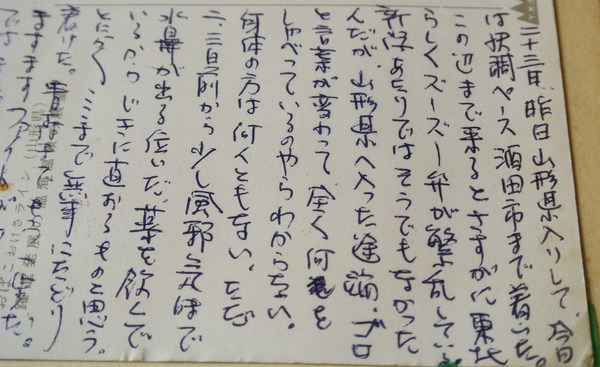 二十三日、昨日山形県入りして、今日
は快調ペース酒田市まで着いた。
この辺まで来るとさすがに東北
らしくズーズー弁が繁乱している
新潟あたりではそうでもなかった
んだが、山形県へ入った途端、ゴロ
と言葉が変わって、全く何を
しゃべっているのやらわからない。
身体の方は何ともない。ただ
二、三日前から少し風邪気味で
水鼻が出る位いだ。薬を飲んで
いるからじきに直おるものと思う。
とにかくここまで無事にたどり
着けた。
ますますファイトが